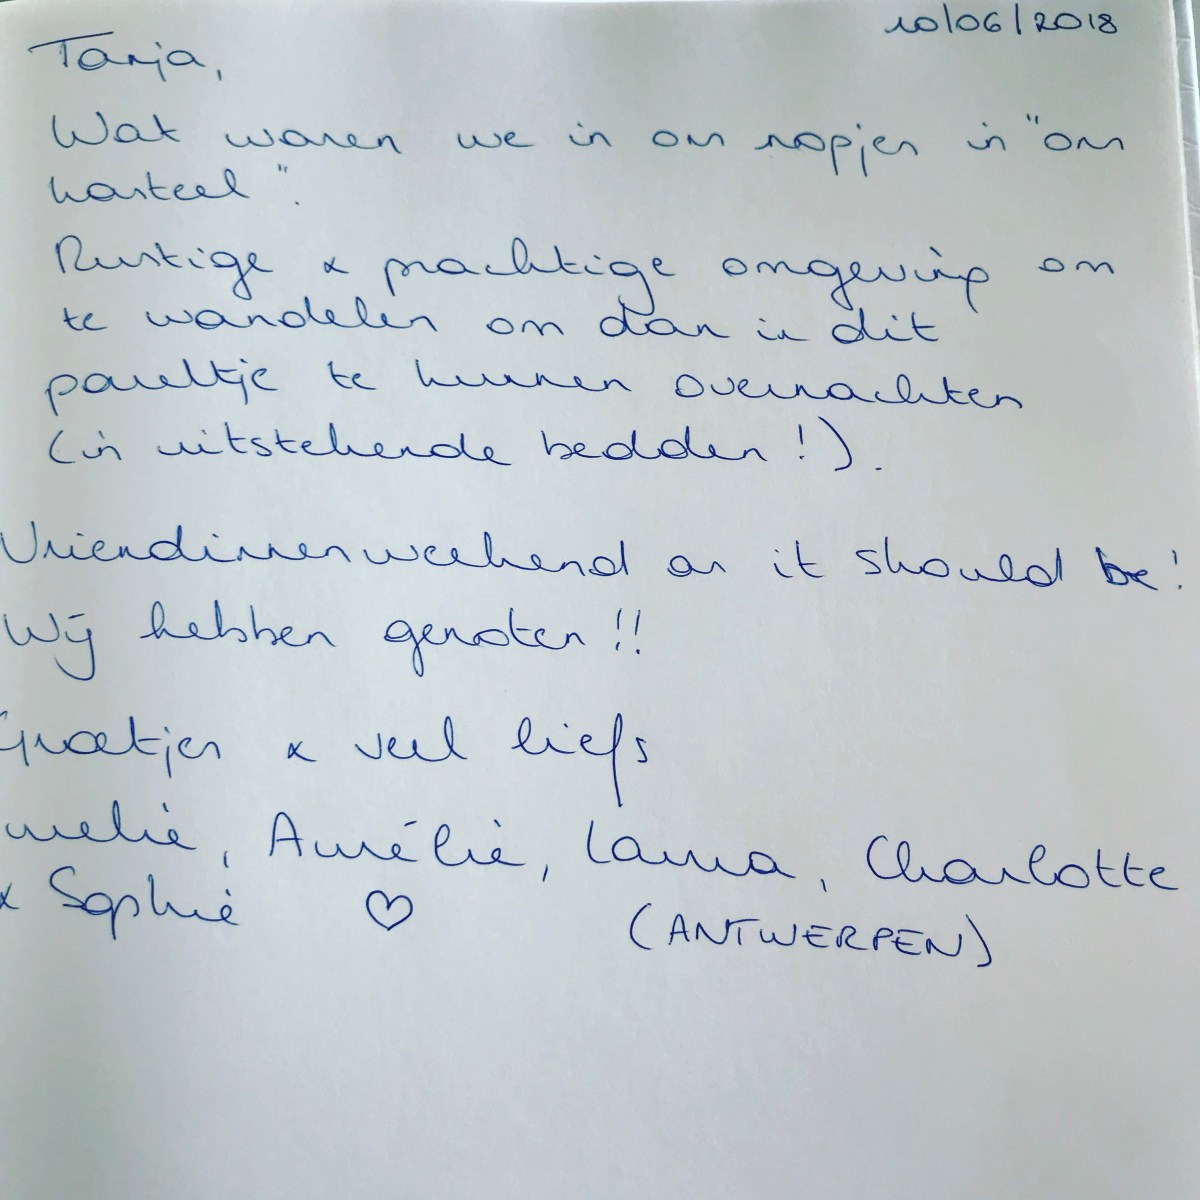 10/06/2018
Tanja,
Wat waren we in ons nopjes in "ons
kasteel".
Rustige & prachtige omgeving om
te wandelen om dan in dit
pareltje te kunnen overnachten
(in uitstekende bedden!).
Vriendinnenweekend as it should be!
Wij hebben genoten!!
Groetjes & veel liefs
melie, Aurélie, Laura, Charlotte
& Sophie ♡ (ANTWERPEN)